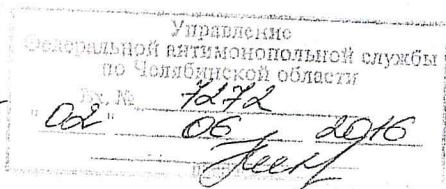 Управление
Федеральной антимонопольной службы
по Челябинской области
Вх. № 7272
"02" 06 2016